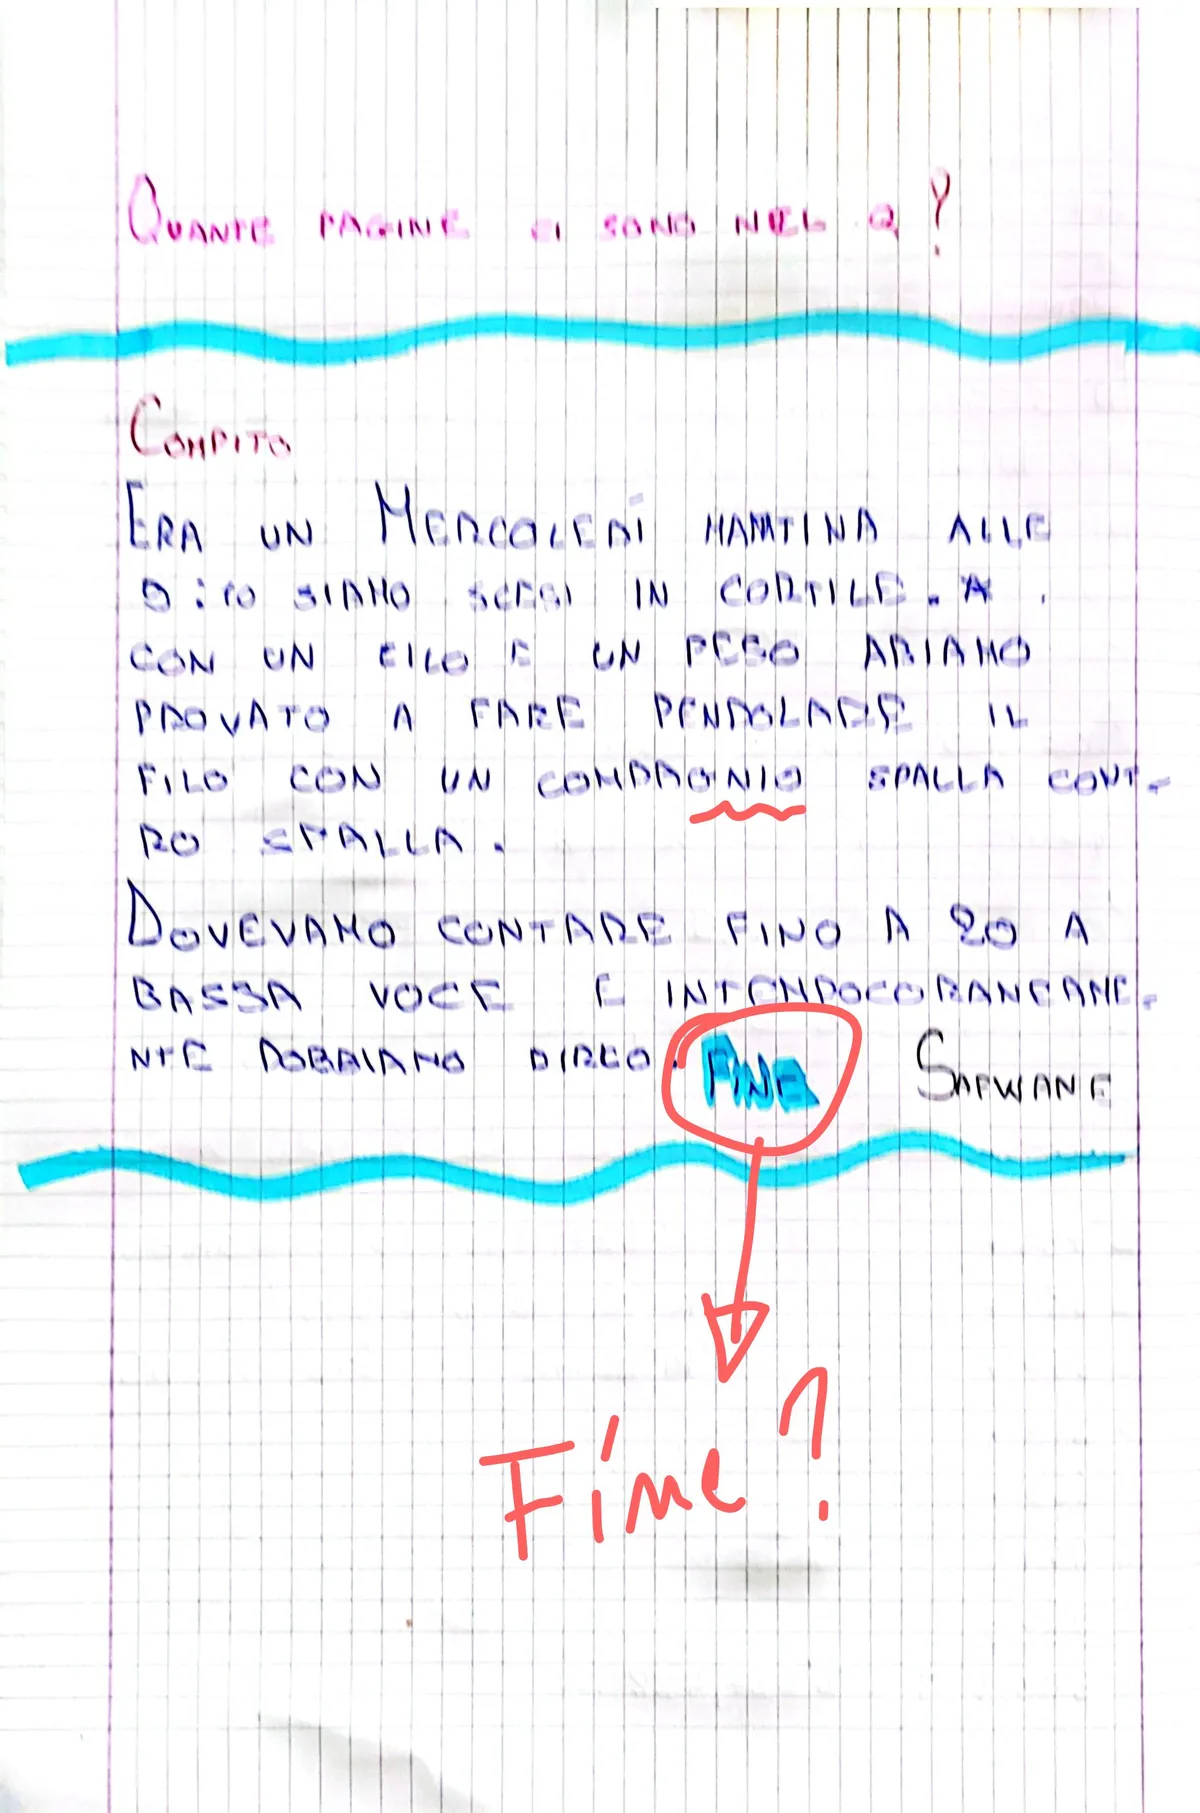 QUANTE PAGINE CI SONO NEL Q?
COMPITO
ERA UN MERCOLEDÌ MAMTINA ALLE
9:10 SIAMO SCESI IN CORTILE. A
CON UN FILO E UN PESO ABIAMO
PROVATO A FARE PENDOLARE IL
FILO CON UN COMPAGNIO SPALLA CONT-
RO SPALLA.
DOVEVAMO CONTARE FINO A 20 A
BASSA VOCE E
NTE DOBBIAMO DIRLO. FINE SAFWANE
Fine?